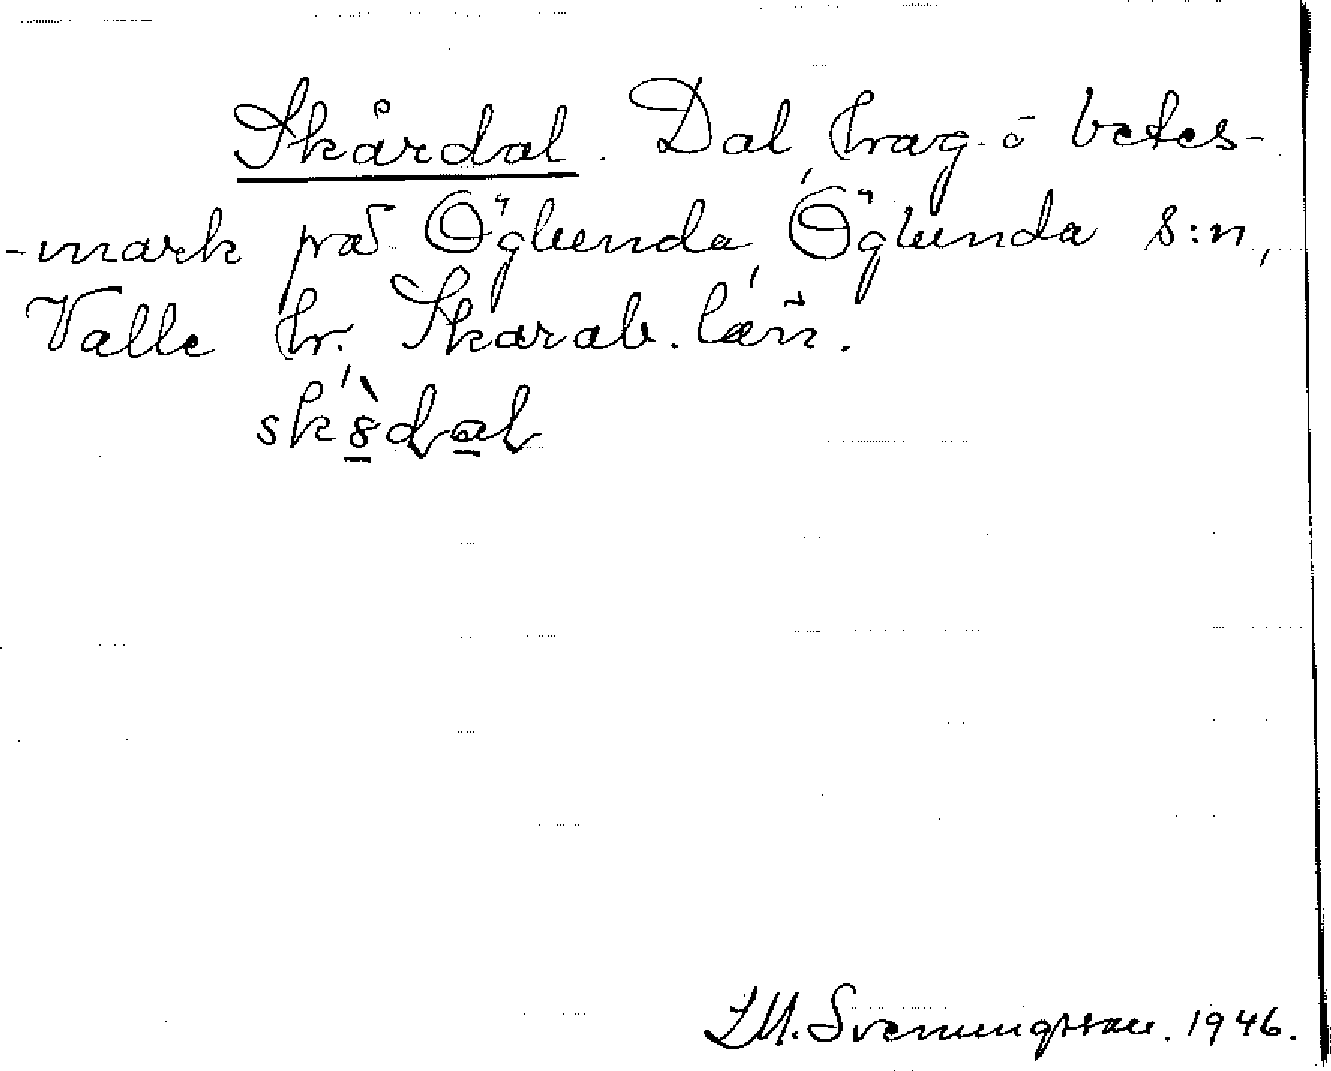 Skårdal. Dal, hag- o betes-
-mark på Öglunda, Öglunda s:n,
Valle hr. Skarab. län.
sk8dal
J.M. Svenningsson. 1946.